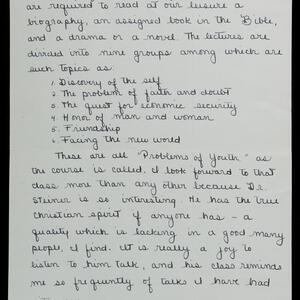 are required to read at our leisure a
biography, an assigned book in the Bible,
and a drama or a novel. The lectures are
divided into nine groups among which are
such topics as:
1. Discovery of the self
2. The problem of faith and doubt
3. The quest for economic security
4. Honor of man and woman
5. Friendship
6. Facing the new world
These are all "Problems of Youth" as
the course is called. I look forward to that
class more than any other because Dr.
Steiner is so interesting. He has the true
christian spirit if anyone has - a
quality which is lacking in a good many
people, I find. It is really a joy to
listen to him talk, and his class reminds
me so frequently of talks I have had